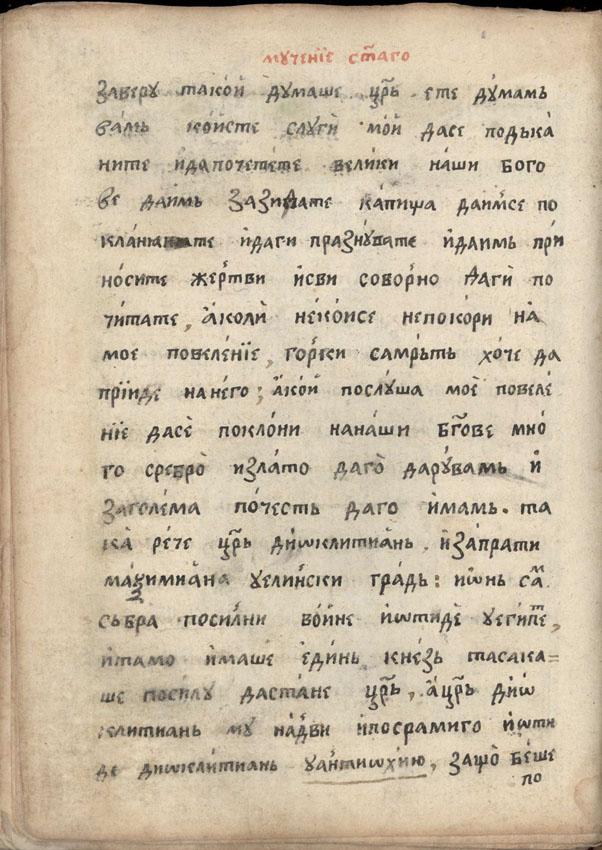 мꙋченїе ст҃аго
заверꙋ такои дꙋмаше цр҃ь ете дꙋмамъ
вамъ коисте слꙋги мои дасе подъка
ните идапочетете велики наши бого
ве даимъ зазидате капища даимсе по
кланꙗте идаги празнꙋвате идаимъ при
носите жертви исви соворно даги по
читате, аколи некоисе непокори на
мое повеленїе, горки самрьть хоче да
прїиде нанего; акои послꙋша мое повеле
нїе дасе поклони нанаши бг҃ове мно
го сребро излато даго дарꙋвамъ и
заголема почесть даго имамъ. та
ка рече цр҃ь диѡклитианъ. изапрати
маѯимиана ꙋелински градъ: иѡнь са́м
събра посилни воине иѡтиде ꙋегипет,
итамо имаше единь кнезь тасака=
ше посилꙋ дастане цр҃ь, ацр҃ь диѡ
клитианъ мꙋ надви ипосрамиго иѡти
де диѡклитианъ ꙋантиѡхию, защо беше
по